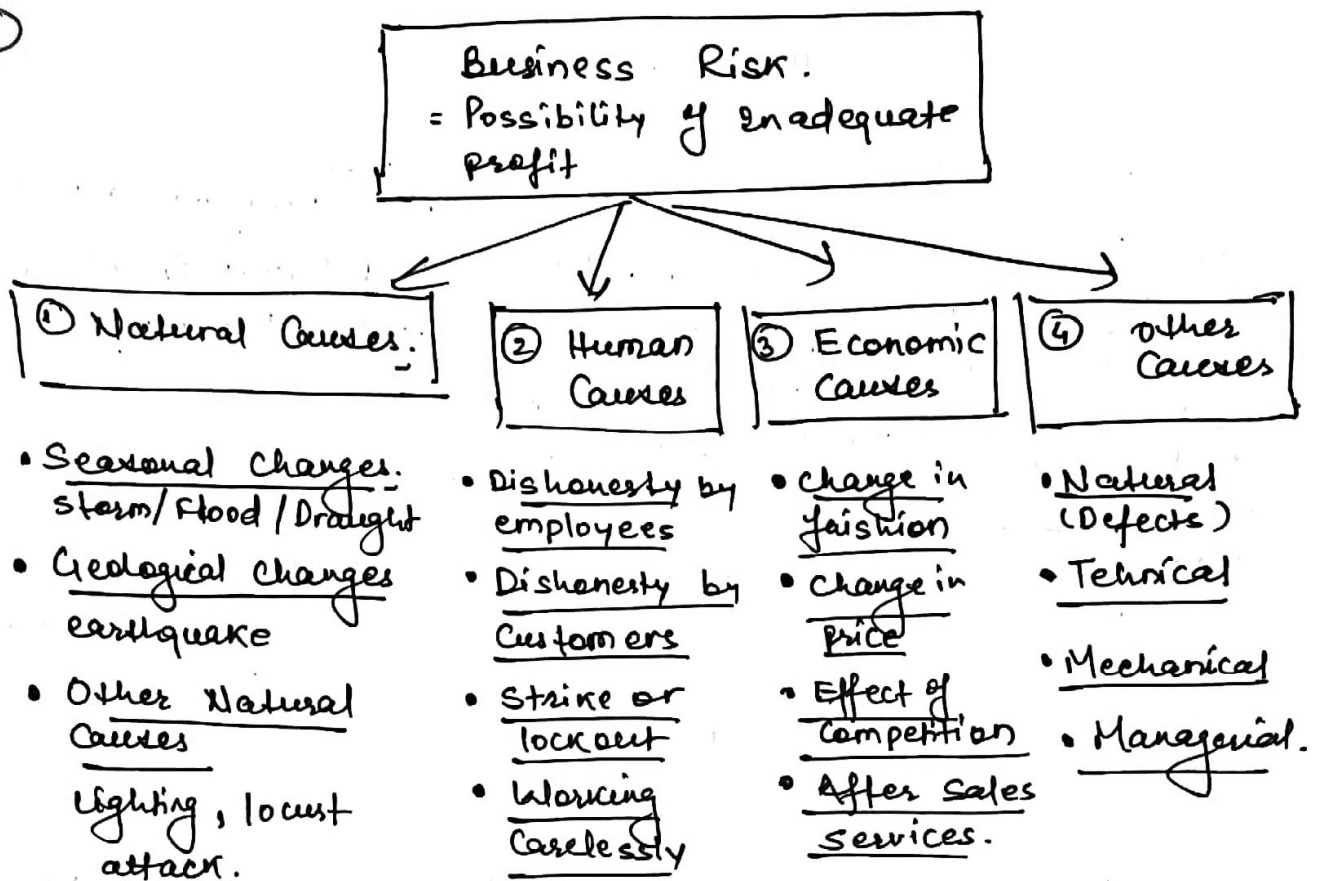 Business Risk.
= Possibility of inadequate
profit
① Natural Causes.
• Seasonal changes.
Storm/Flood/Draught
• Geological changes
earthquake
• Other Natural
Causes
Lighting, locust
attack.
② Human
Causes
• Dishonesty by
employees
• Dishonesty by
Customers
• Strike or
lockout
• Working
Carelessly
③ Economic
Causes
• change in
faishion
• change in
price
• Effect of
Competition
• After Sales
services.
④ other
Causes
• Natural
(Defects)
• Tehnical
• Mechanical
• Managerial.